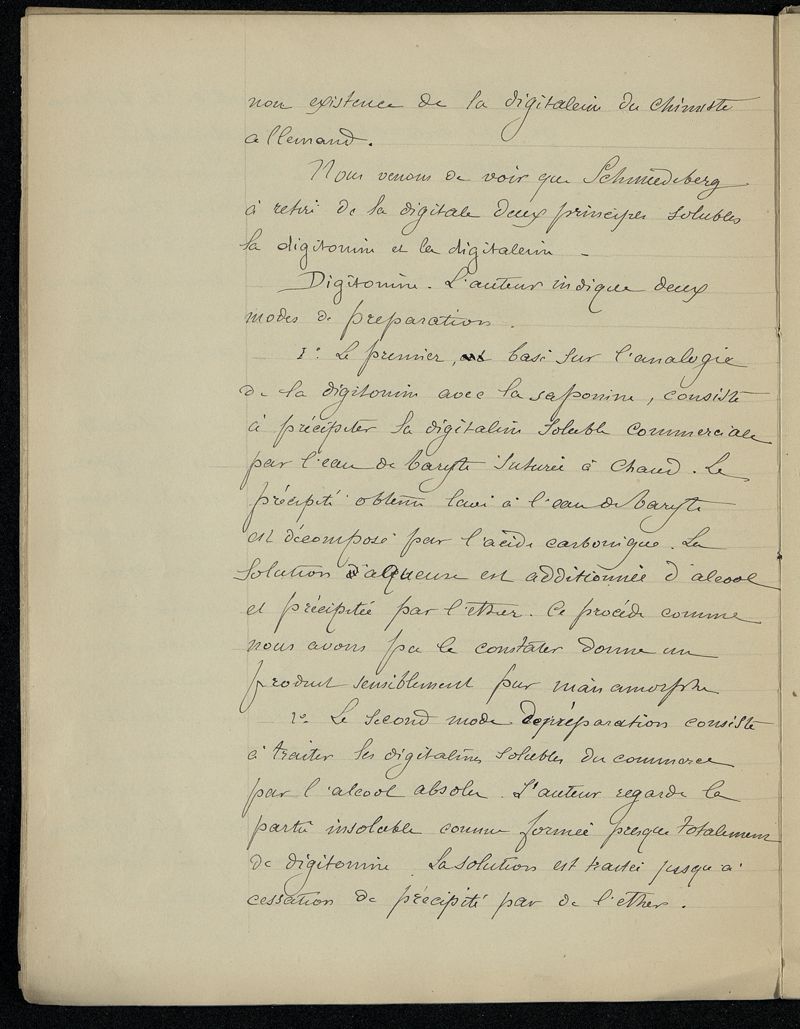 non existence de la digitalein du chimiste
allemand.
Nous venons de voir que Schmiedeberg
à retiré de la digitale deux principes solubles
la digitonine et la digitalein -
Digitonine. L'auteur indique deux
modes de préparation.
1°. Le premier, basé sur l'analogie
de la digitonine avec la saponine, consiste
à précipiter la digitaline soluble commerciale
par l'eau de baryte saturée à chaud. Le
précipité obtenu lavé à l'eau de baryte
est décomposé par l'acide carbonique. La
solution aqueuse est additionnée d'alcool
et précipitée par l'ether. Ce procédé comme
nous avons pu le constater donne un
produit sensiblement pur mais amorphe
2°. Le second mode de préparation consiste
à traiter les digitalines solubles du commerce
par l'alcool absolu. L'auteur regarde la
partie insoluble comme formée presque totalement
de digitonine. La solution est traitée jusqu'à
cessation de précipité par de l'ether.